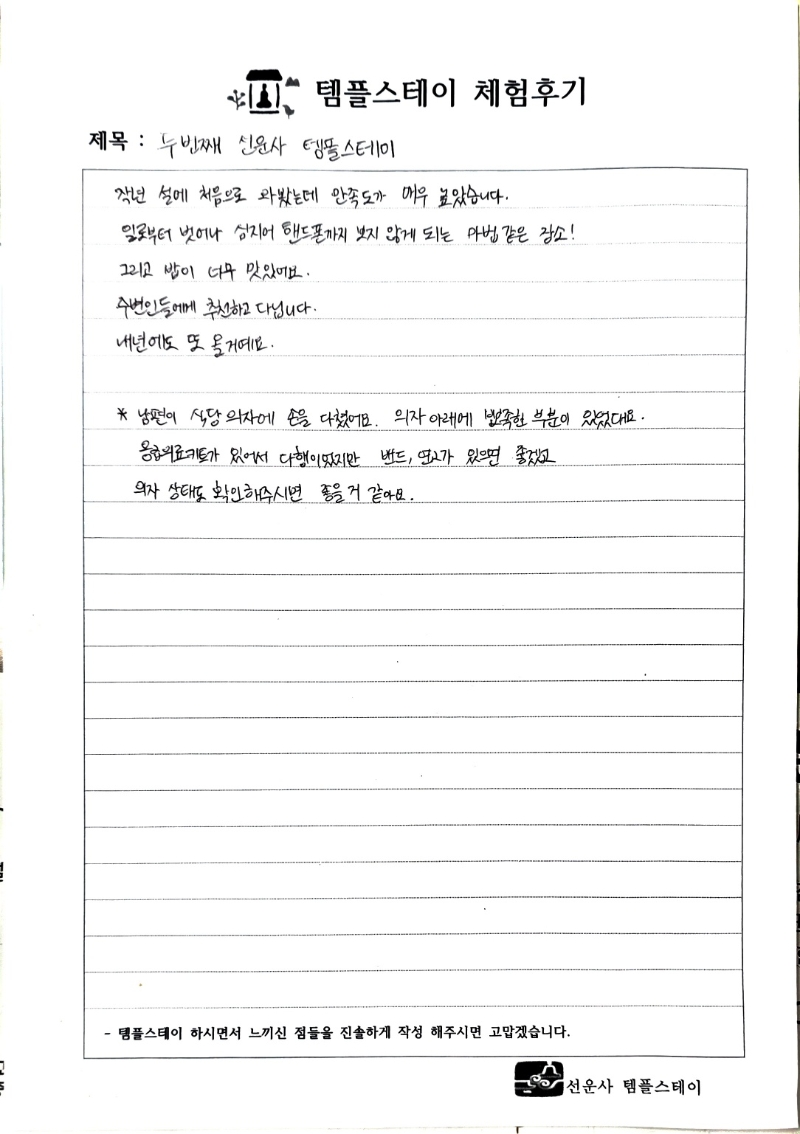 템플스테이 체험후기
제목 : 두번째 선운사 템플스테이
작년 설에 처음으로 와봤는데 만족도가 매우 높았습니다.
일로부터 벗어나 심지어 핸드폰까지 보지 않게 되는 마법같은 장소!
그리고 밥이 너무 맛있어요.
주변인들에게 추천하고 다닙니다.
내년에도 또 올거예요.
* 남편이 식당 의자에 손을 다쳤어요. 의자 아래에 뾰족한 부분이 있었대요.
응급의료키트가 있어서 다행이었지만 밴드, 연고가 있으면 좋겠고
의자 상태도 확인해주시면 좋을거 같아요.
- 템플스테이 하시면서 느끼신 점들을 진솔하게 작성 해주시면 고맙겠습니다.
선운사 템플스테이